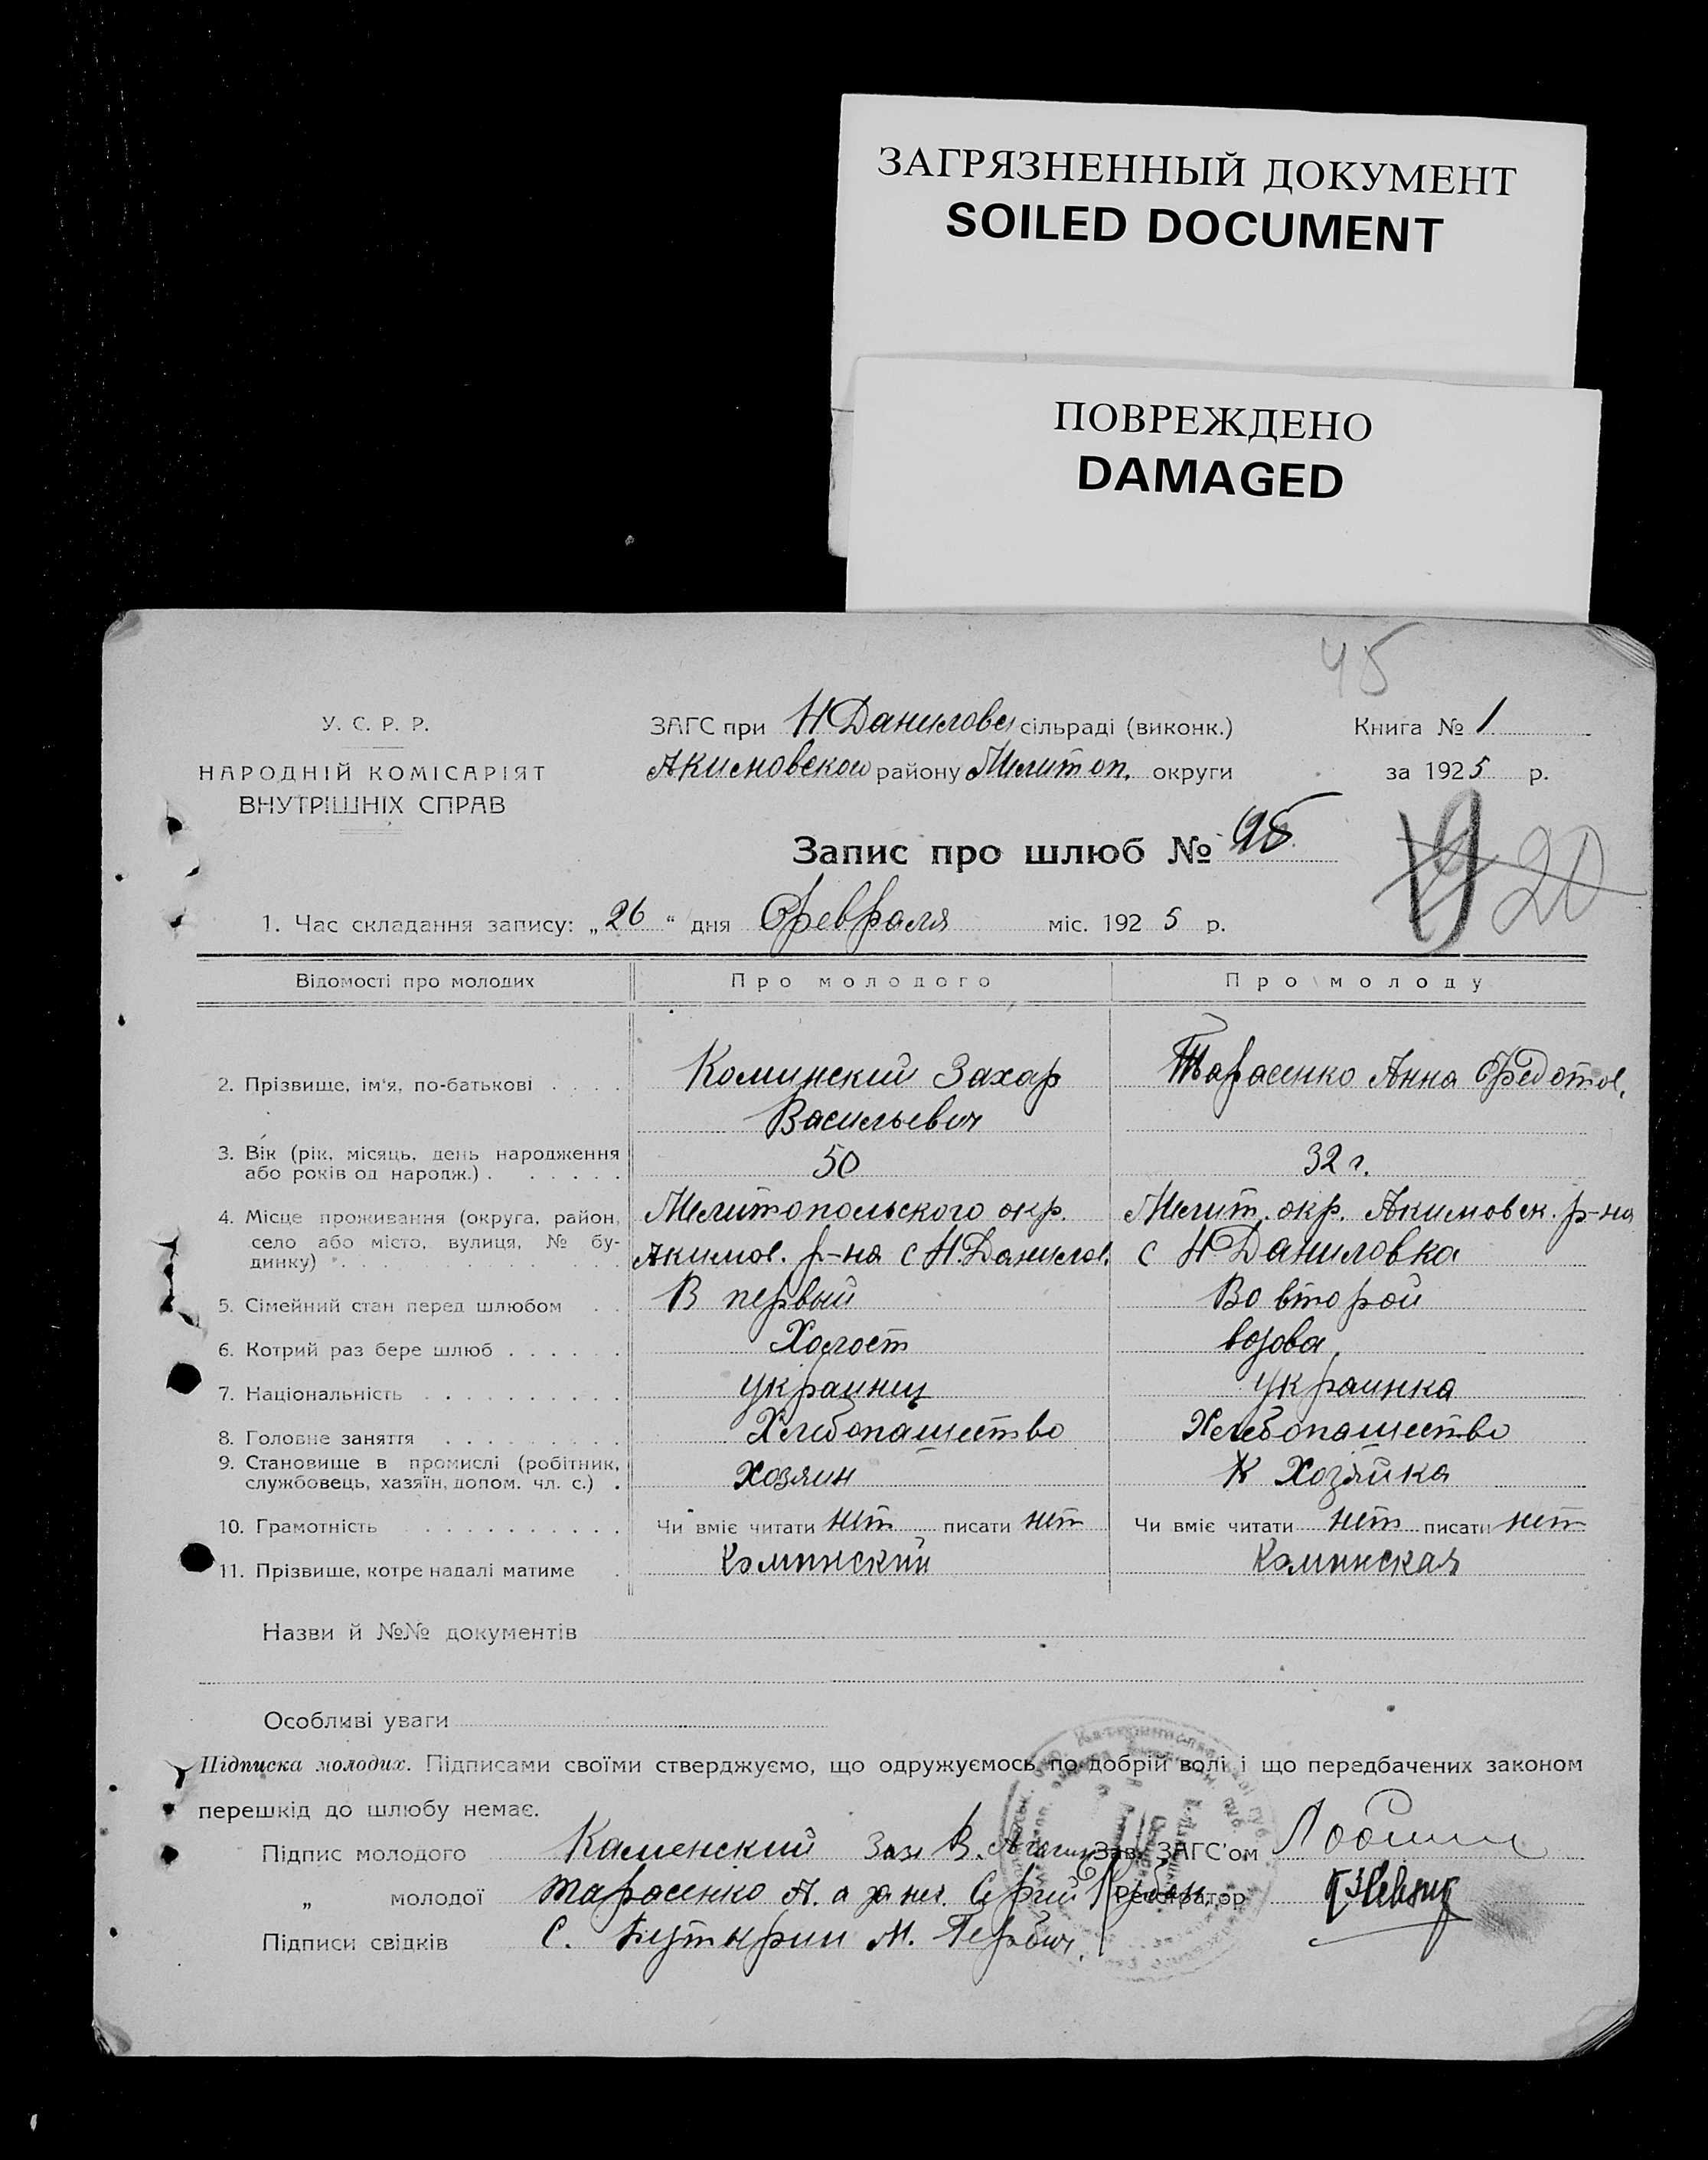 ЗАГРЯЗНЕННЫЙ ДОКУМЕНТ
SOILED DOCUMENT
ПОВРЕЖДЕНО
DAMAGED
45
У. С. Р. Р.
НАРОДНІЙ КОМІСАРІЯТ
ВНУТРІШНІХ СПРАВ
ЗАГС при Н Данилов сільраді (виконк.)
Акимовского району Мелитоп. округи
Книга № 1
за 1925 р.
Запис про шлюб №
19 20
1. Час складання запису: „26“ дня Февраля міс. 1925 р.
Відомості про молодих Про молодого Про молоду
2. Прізвище, ім'я, по-батькові . . . . Коминский Захар Тарасенко Анна Федотов.
Васильевич
3. Вік (рік, місяць, день народження 50 32 г.
або років од народж.) . . . . . .
4. Місце проживання (округа, район, Мелитопольского окр. Мелит. окр. Акимовск. р-на
село або місто, вулиця, № бу- Акимов. р-на с Н. Данилов. с Н Даниловка
динку) . . . . . . . . . . . . . .
5. Сімейний стан перед шлюбом . . В первый Во второй
6. Котрий раз бере шлюб . . . . . . Холост вдова
7. Національність . . . . . . . . . украинец украинка
8. Головне заняття . . . . . . . . . Хлебопашество Хлебопашество
9. Становище в промислі (робітник, Хозяин Хозяйка
службовець, хазяїн, допом. чл. с.) .
10. Грамотність . . . . . . . . . . . Чи вміє читати нет писати нет Чи вміє читати нет писати нет
11. Прізвище, котре надалі матиме . Коминский Коминская
Назви й №№ документів
Особливі уваги
Підписка молодих. Підписами своїми стверджуємо, що одружуємось по добрій волі і що передбачених законом
перешкід до шлюбу немає.
Підпис молодого Каменский В. Зав. ЗАГС'ом
„ молодої Тарасенко А. Сергий Реєстратор
Підписи свідків С. М.